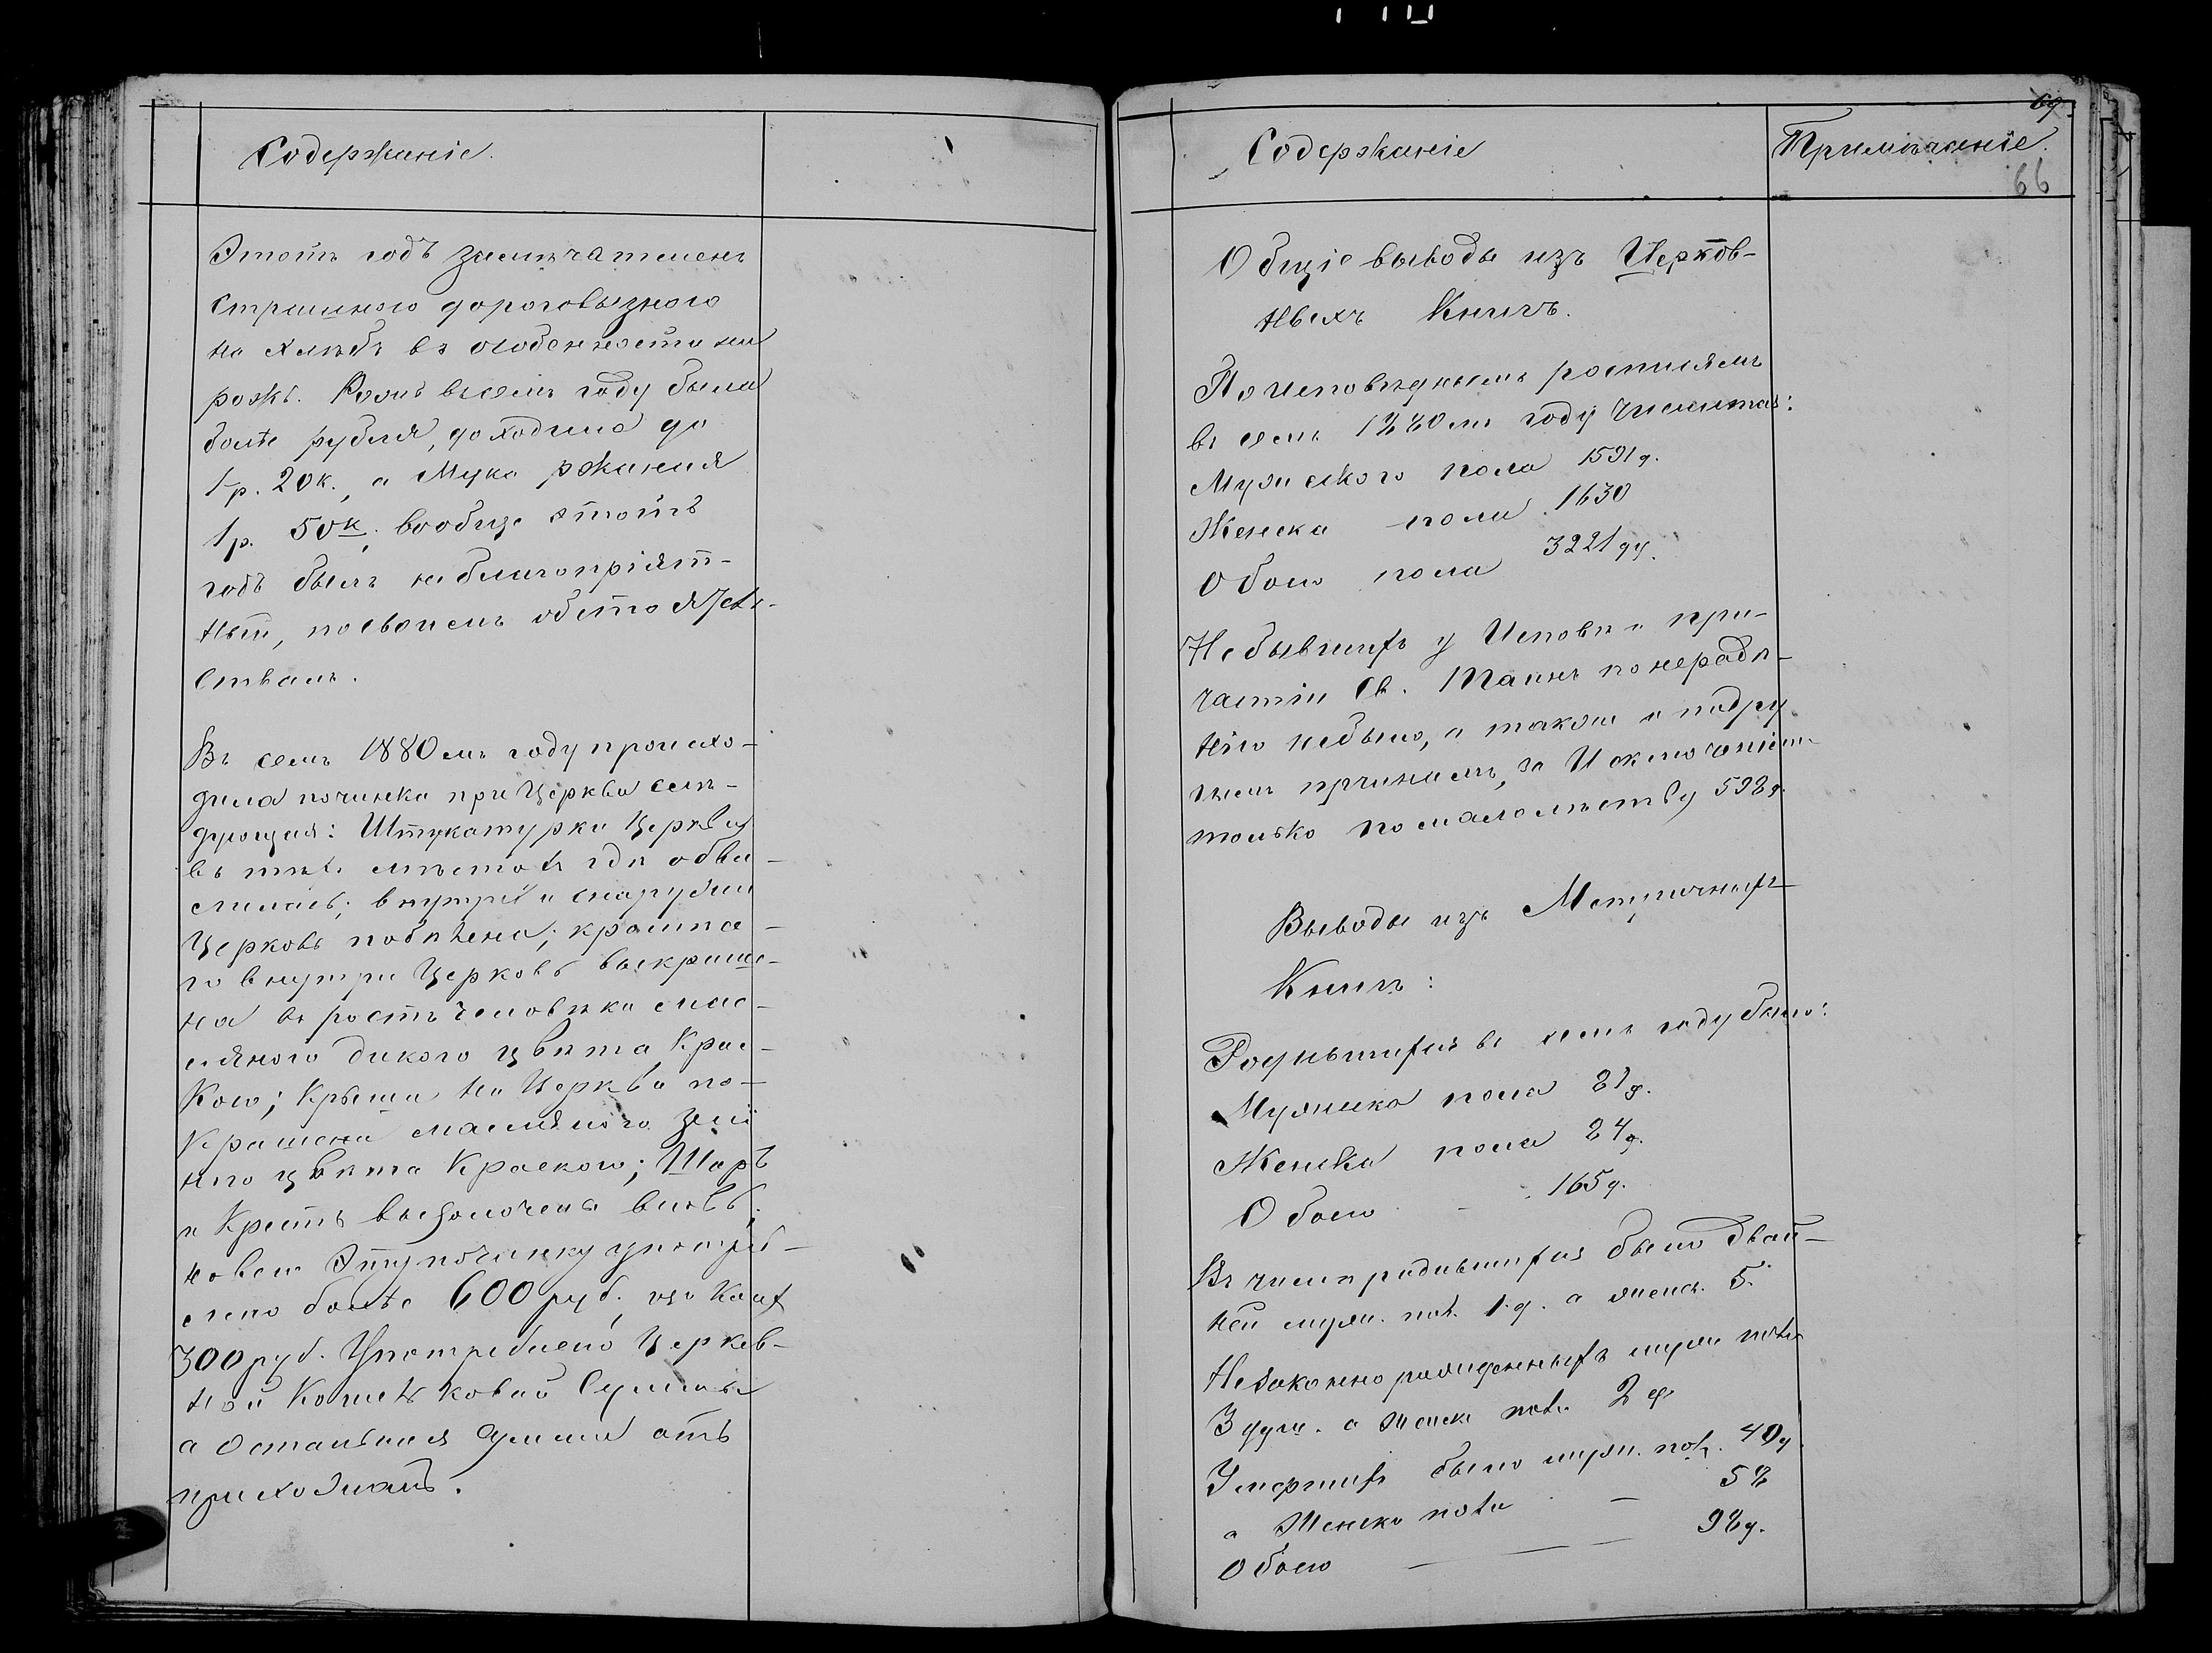 Содержаніе.
Этотъ годъ замѣчателенъ
страшною дороговизною
на хлѣбъ въ особенности на
рожь. Рожь въ семъ году была
болѣе рубля, доходила до
1 р. 20 к., а Мука ржаная
1 р. 50 к. вообще этотъ
годъ былъ неблагопріят-
ный, по своимъ обстоятель-
ствамъ.
Въ семъ 1880 мъ году происхо-
дила починка при Церкви слѣ-
дующая: Штукатурка Церкви
въ тѣхъ мѣстахъ гдѣ обва-
лилась; внутри и снаружи
Церковь побѣлена; кромѣ се-
го внутри Церковь выкраше-
на въ ростъ человѣка мас-
ляною дикого цвѣта крас-
кою; Крыша на Церкви по-
крашена масляною зелё
наго цвѣта Краскою; Шаръ
и Крестъ вызолочены вновь;
на всю эту починку употреб-
лено болѣе 600 руб. изъ коихъ
300 руб. Употреблено Церков-
ной Кошельковой Суммы
а остальная сумма отъ
прихожанъ.
Содержаніе
Примѣчаніе.
69.
66
Общіе выводы изъ Церков-
ныхъ Книгъ.
По исповѣднымъ росписямъ
въ семъ 1880 мъ году числится:
Мужескаго пола 1591 д.
Женска пола 1630
Обоего пола 3221 ду.
Не бывшихъ у Исповѣди и при-
частіи Св. Таинъ по нерадѣ-
нію небыло, а также и по дру
гимъ причинамъ, за Исключеніемъ
только по малолѣтству 598 д.
Выводы изъ Метричныхъ
Книгъ:
Родившихся въ семъ году было:
Мужеска пола 81 д.
Женска пола 84 д.
Обоего - 165 д.
Въ числѣ родившихся было двой-
ней муж. пол. 1 д. а женск. 5.
Незаконно рожденныхъ муж. пола
3 душ. а женск. пола 2 д.
Умершихъ было муж. пол. 40 д.
а Женска пола - 58
Обоего - 98 д.